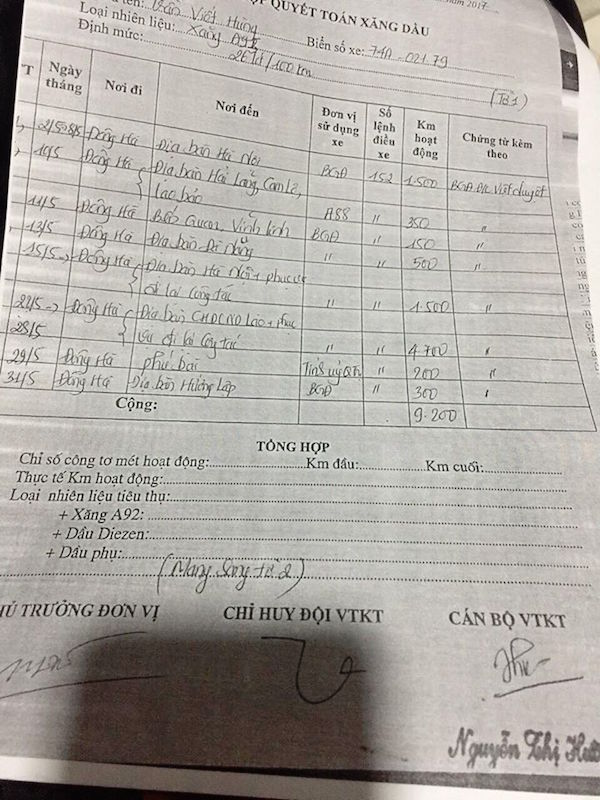 QUYẾT TOÁN XĂNG DẦU
năm 2017
tên: Trần Viết Hùng
Loại nhiên liệu: Xăng A92
Biển số xe: 74A-021.79
Định mức: 26 lít/100 km
(TB1)
T Ngày tháng Nơi đi Nơi đến Đơn vị sử dụng xe Số lệnh điều xe Km hoạt động Chứng từ kèm theo
Đông Hà Địa bàn Hà Nội BGĐ 152 1.500 BGĐ Viết duyệt
10/5 Đông Hà Địa bàn Hải Lăng, Cam Lộ,
Lao bảo A88 " 350 "
11/5 Đông Hà Vĩnh Linh BGĐ " 150 "
13/5 Đông Hà Địa bàn Đà Nẵng " " 500 "
15/5 Đông Hà Địa bàn Hà Nội + phục vụ
đi lại công tác " " 1.500 "
22/5 Đông Hà Địa bàn CHDCND Lào + phục
28/5 vụ đi lại công tác " " 4.700 "
29/5 Đông Hà phú bài Tỉnh uỷ " 200 "
31/5 Đông Hà Địa bàn Hướng Lập BGĐ " 300
Cộng: 9.200
TỔNG HỢP
Chỉ số công tơ mét hoạt động: Km đầu: Km cuối:
Thực tế Km hoạt động:
Loại nhiên liệu tiêu thụ:
+ Xăng A92:
+ Dầu Diezen:
+ Dầu phụ:
(Mang sang tờ 2)
HỦ TRƯỞNG ĐƠN VỊ CHỈ HUY ĐỘI VTKT CÁN BỘ VTKT
Nguyễn Thị